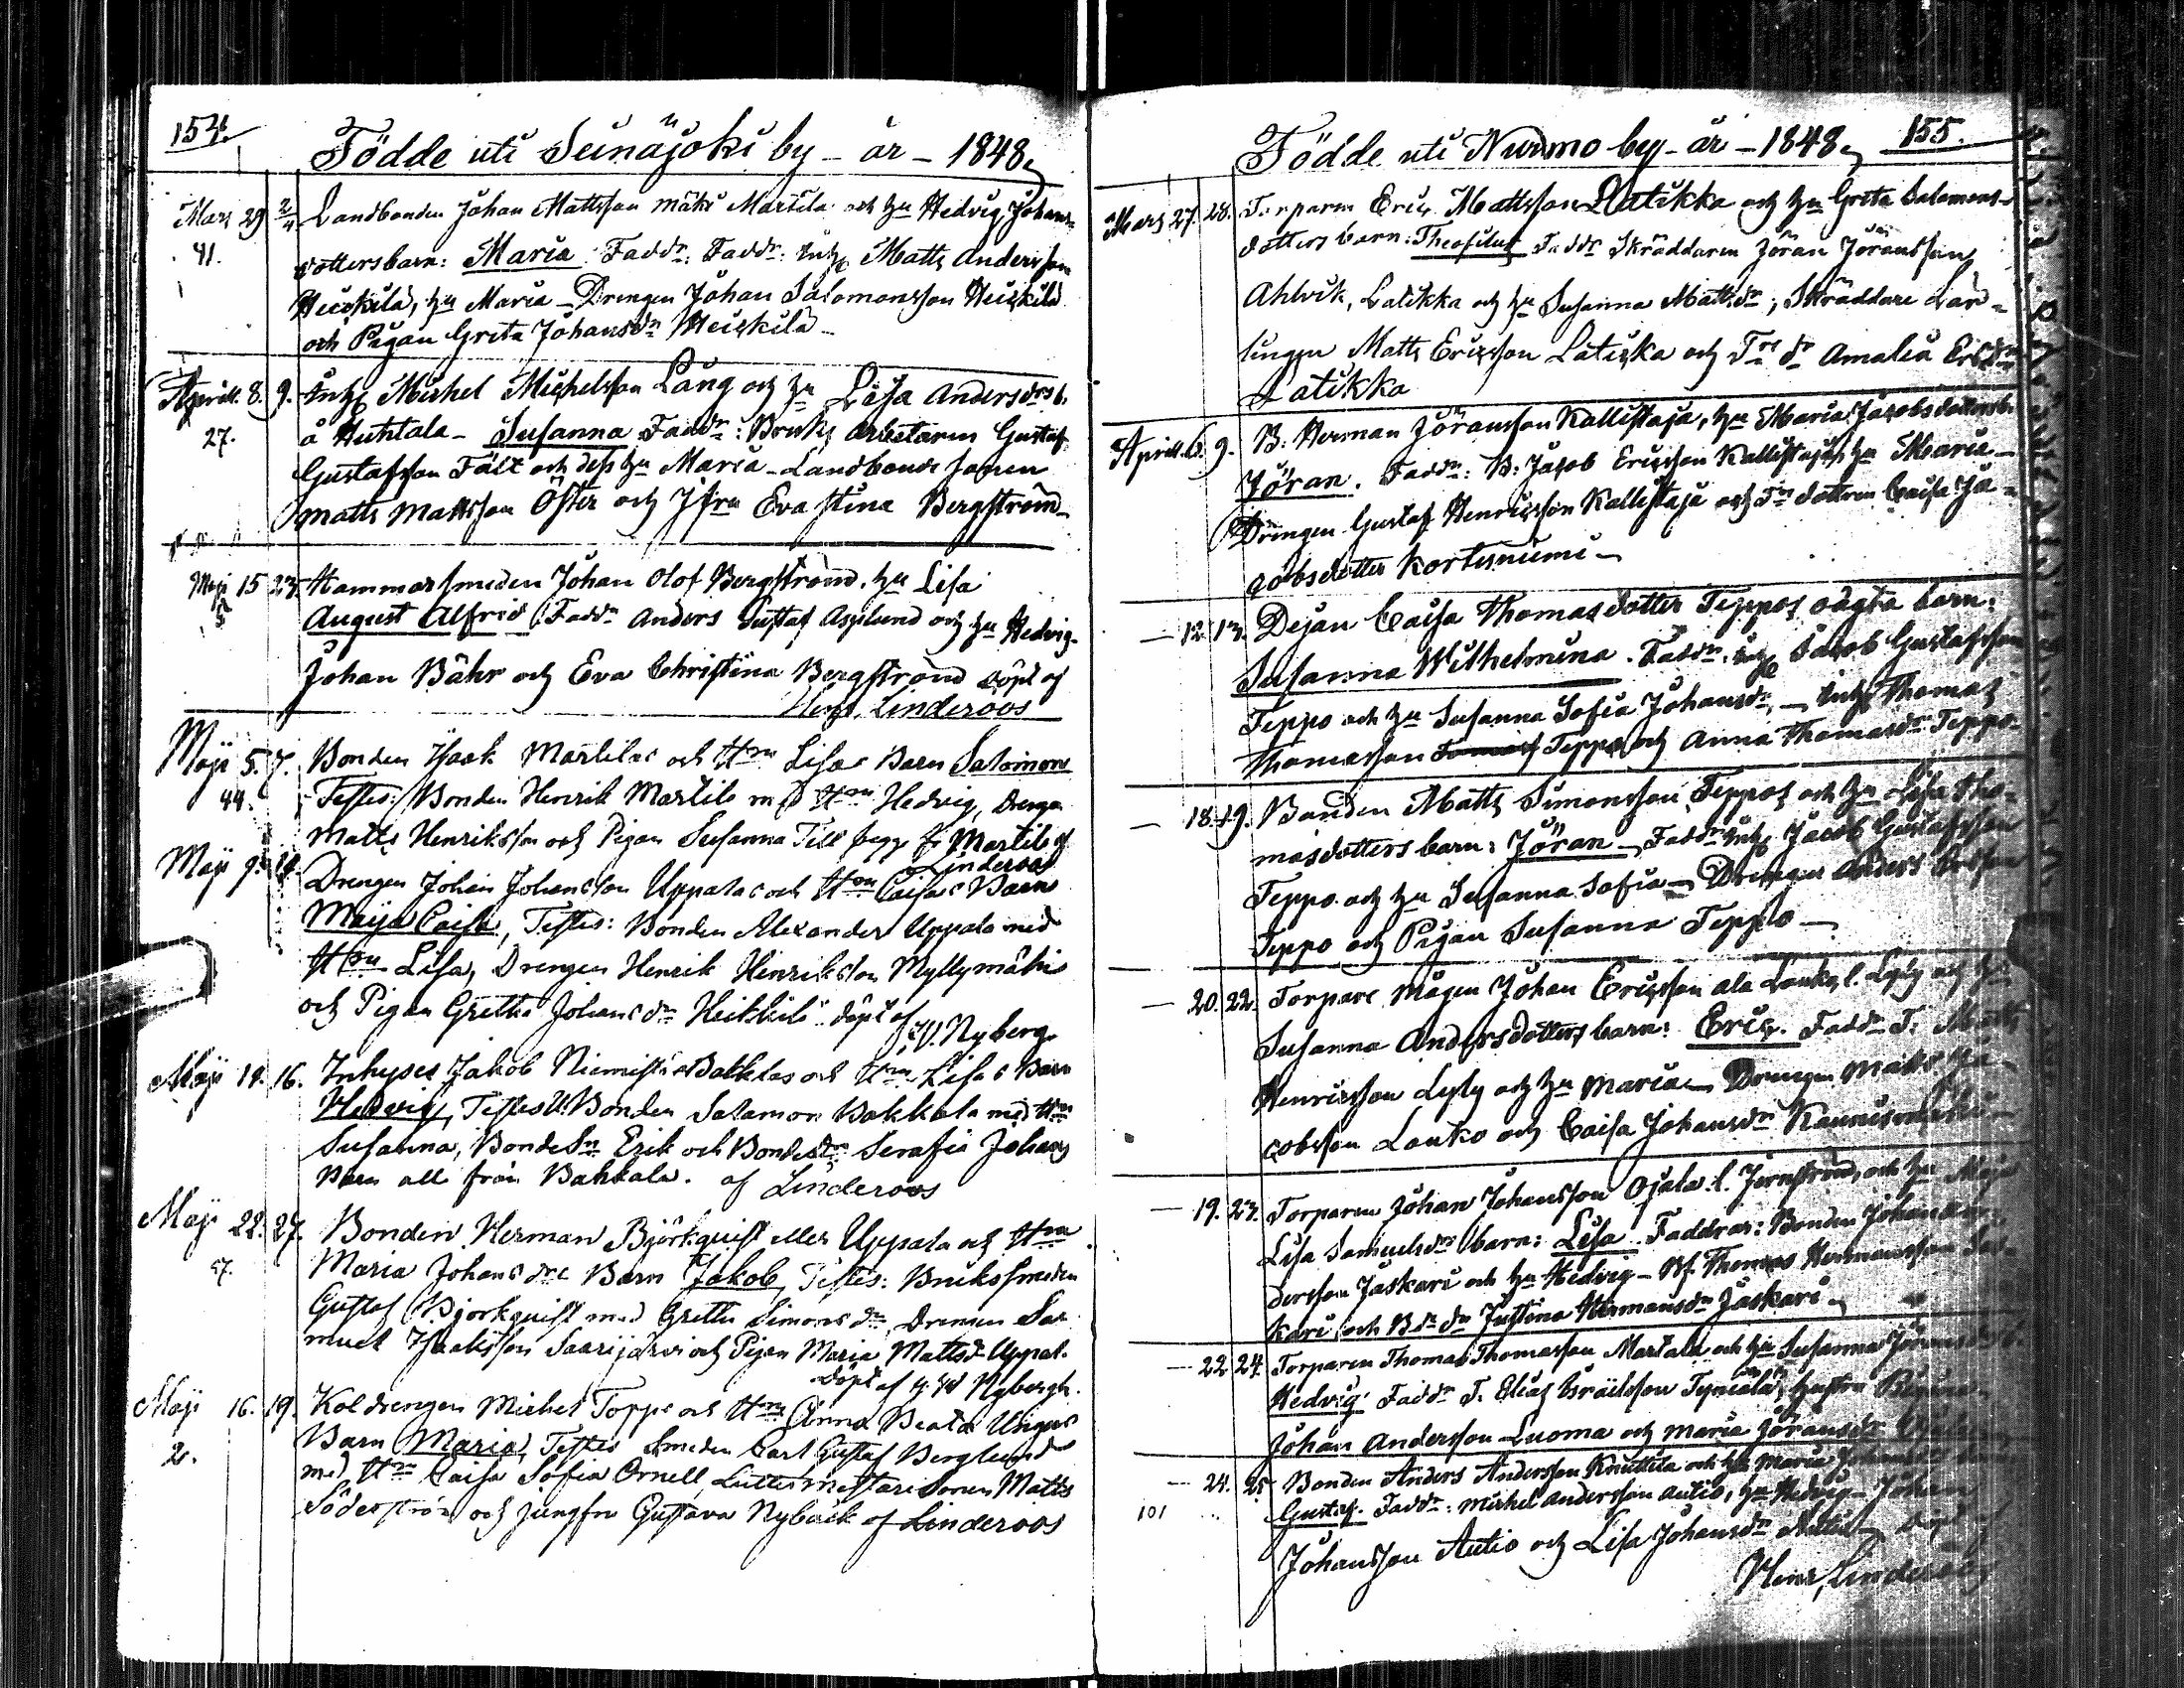 154.
Födde uti Seinäjoki by - år - 1848
Mars 29 2/4 Landbonden Johan Mattsson Mäki Martila och hu Hedvig Johans-
41. dottersbarn: Maria Faddr: Inhs Matts Andersson
Heickilä, hu Maria - Drengen Johan Salomonsson Heickilä
och Pigan Greta Johansdr Heickilä
Aprill 8. 9. Inhs Michel Michelsson Lång och hu Lisa Andersdrs b.
27. å Huhtala - Susanna Faddr: Bruks arbetaren Gustaf
Gustafsson Fält och dess hu Maria - Landbonde sonen
Matts Mattsson Öster och Jfru Eva Stina Bergström
Maji 15 23 Hammarsmeden Johan Olof Bergström, hu Lisa
August Alfrid Faddr Anders Gustaf Asplund och hu Hedvig
Johan Bähr och Eva Christina Bergström döpt af
Henr. Linderoos
Maji 5. 7. Bonden Isaak Martilas och Hru Lisas Barn Salomon
44. Testes: Bonden Henrik Martila med Hru Hedvig, Drengen
Matts Henriksson och Pigan Susanna Martila af
Linderoos
Maji 9. Drengen Johan Johansson Uppalas och Hru Caisas Barn
Maija Caisa, Testes: Bonden Alexander Uppala med
Hru Lisa, Drengen Henrik Henriksson Myllymäki
och Pigan Gretha Johansdr Heikkilä döpt af
Nyberg
Maji 14. 16. Inhyses Jakob Niemistö Bakkas och Hru Lisas Barn
Hedvig, Testes Bonden Salamon Bakkala med Hru
Susanna, Bonde Sn Erik och Bondedr Serafia Johans
Barn alla från Bakkala. af Linderoos
Maji 22. 27. Bonden Herman Björkquist eller Uppala och Hru
47. Maria Johansdrs Barn Jakob, Testes: Bruks Smeden
Gustaf Björkquist med Gretha Simonsdr, Drengen Sa-
muel Isaksson Saarijärvi och Pigan Maria Mattsdr Uppal-
döpt af Nybergh.
Maji 16. 19. Koldrengen Michel Toppo och Hru Anna Beata Ungers
2. Barn Maria, Testes Smeden Carl Gustaf Berglund
med Hru Caisa Sofia Ornell, Sonen Matts
Söderström och Jungfru Gustava Nybäck af Linderoos
Födde uti Nurmo by - år - 1848 155.
Mars 27. 28. Torparen Eric Mattsson Latikka och hu Greta Salomons-
dotters barn: Theofilus Faddr Skräddaren Jöran Jöransson
Ahlvik, Latikka och hu Susanna Mattsdr, Skräddare Lär-
lingen Matts Ericsson Latikka och Trs dr Amalia Ericsdr
Latikka
Aprill 6. 9. B: Herman Jöransson Kallistaja, hu Maria Jacobsdotters b.
Jöran. Faddr: B: Jacob Ericsson Kallistaja, hu Maria -
Drengen Gustaf Henricsson Kallistaja och Trs dottren Caisa Ja-
cobsdotter Kortesniemi -
- 12. 13. Dejan Caisa Thomasdotter Teppos oägta barn:
Susanna Wilhelmina. Faddr: Inhs Jacob Gustafsson
Teppo och hu Susanna Sofia Johansdr, - Inhs Thomas
Thomasson Teppo och Anna Thomasdr Teppo-
- 18. 19. Bonden Matts Simonsson Teppos och hu Lisa Tho-
masdotters barn: Jöran - Faddr Inhs Jacob Gustafsson
Teppo och hu Susanna Sofia - Drengen Anders
Teppo och Pigan Susanna Teppo -
- 20. 22. Torpare Mågen Johan Ericsson ala Louko l. Lyly och hu
Susanna Andersdotters barn: Eric. Faddr T. Matts
Henricsson Lyly och hu Maria - Drengen Matts Ja-
cobsson Louko och Caisa Johansdr
- 19. 23. Torparen Johan Johansson Ojala l. Jernström, och hu Maja
Lisa Samuelsdrs barn: Lisa Faddrar: Bonden Johan An-
dersson Jaskari och hu Hedvig - Thomas Hermansson Jas-
kari, och Bdr dr Justina Hermansdr Jaskari -
- 22 24. Torparen Thomas Thomasson Martala och hu Susanna Jöransd
Hedvig. Faddr T. Elias Israelsson Hustru
Johan Andersson Luoma och Maria Jöransdr
- 24. 25 Bonden Anders Andersson Knuttila och hu Maria
101 Gustaf. Faddr: Michel Andersson Autio, hu Hedvig - Johan
Johansson Autio och Lisa Johansdr döpt af
Henr. Linderoos